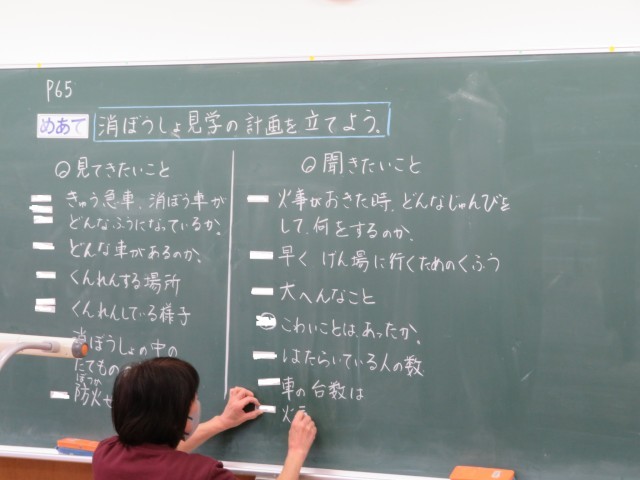 P65
めあて 消ぼうしょ見学の計画を立てよう。
見てきたいこと
きゅう急車、消ぼう車が
どんなふうになっているか。
どんな車があるのか。
くんれんする場所
くんれんしている様子
消ぼうしょの中の
たてもの
ぼうか
防火せ
聞きたいこと
火事がおきた時、どんなじゅんびを
して、何をするのか。
早く げん場に行くためのくふう
大へんなこと
こわいことは、あったか。
はたらいている人の数
車の台数は
火